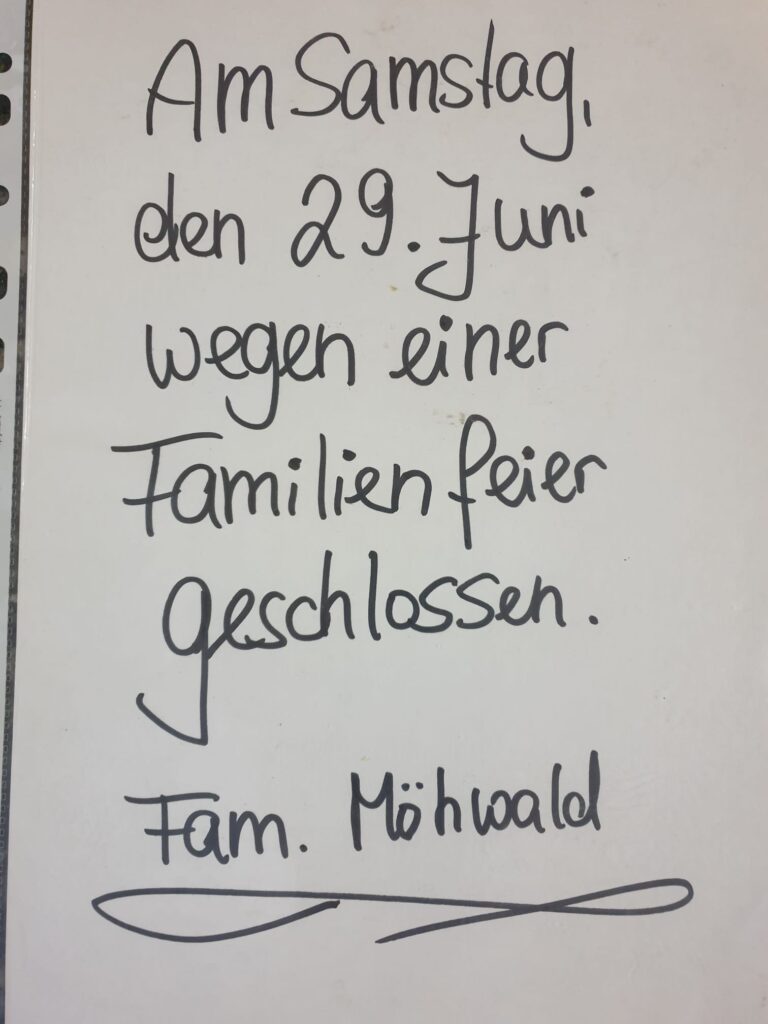 Am Samstag,
den 29. Juni
wegen einer
Familienfeier
geschlossen.
Fam. Möhwald